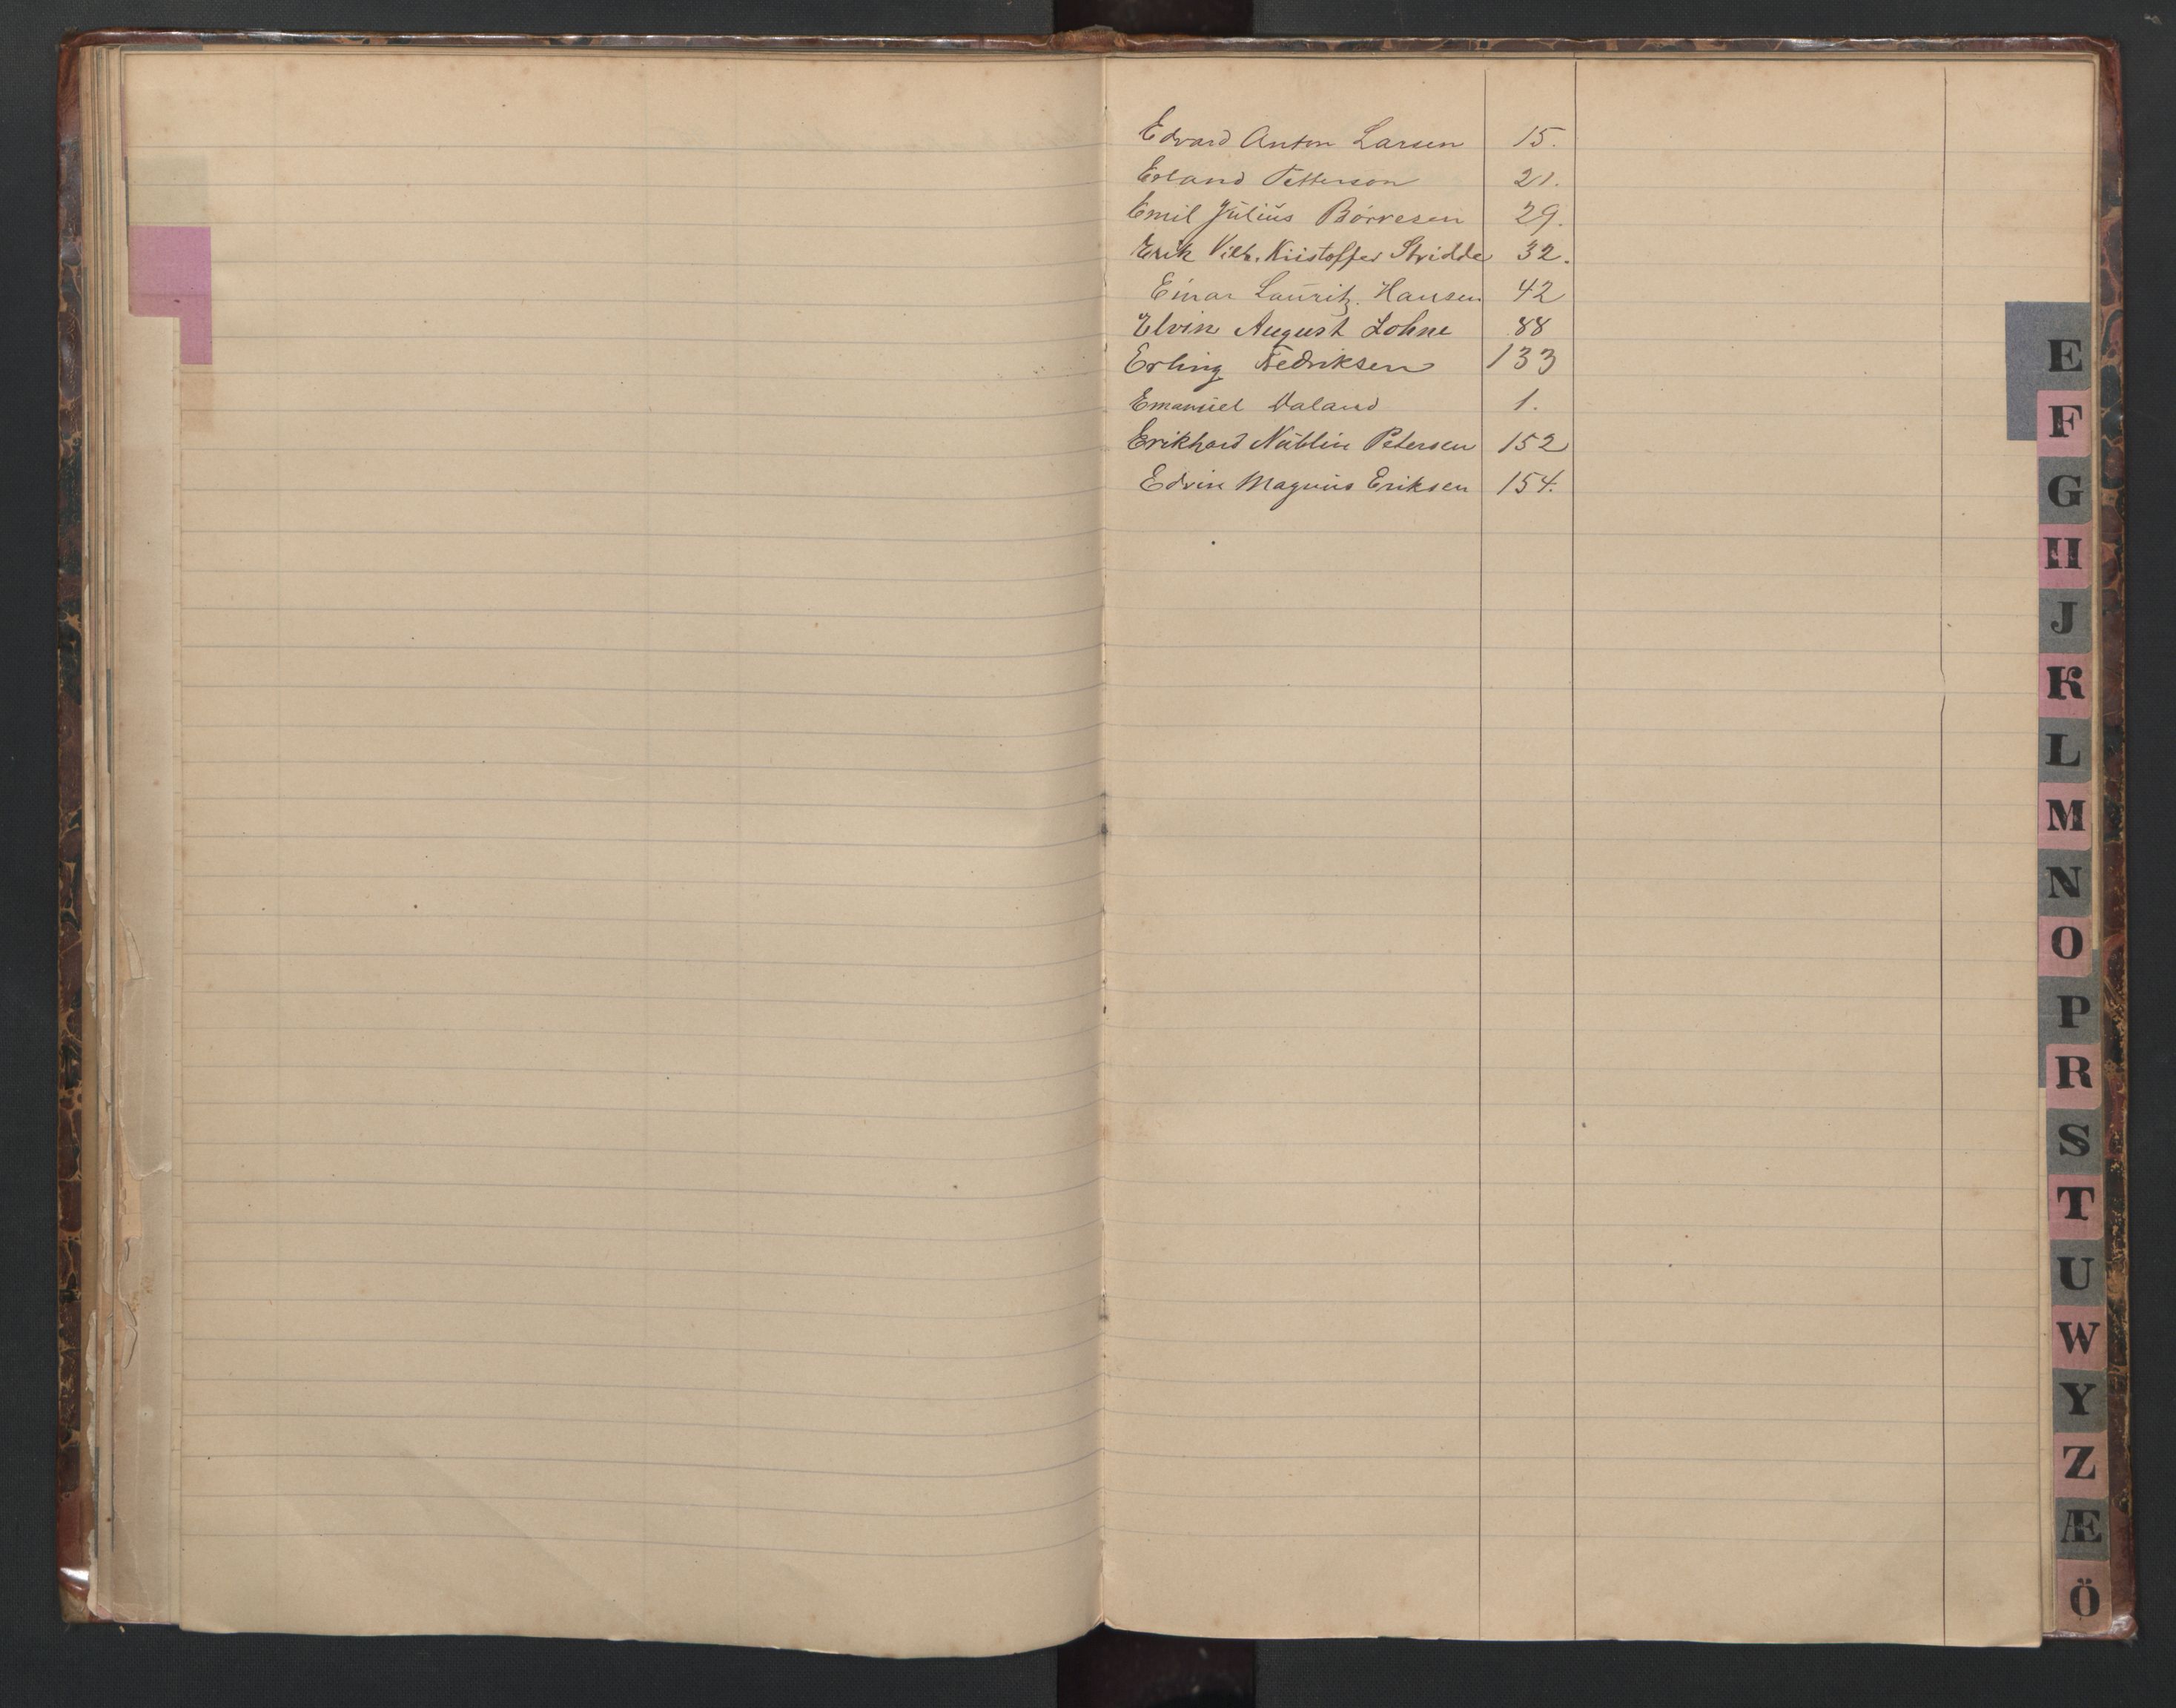 Edvard Anton Larsen 15.
Erland Petterson 21.
Emil Julius Börresen 29.
Erik Vilh. Kristoffer Stridde 32.
Einar Lauritz Hansen 42
Elvin August Lohne 88
Erling Fredriksen 133
Emanuel Valand 1.
Erikhard Petersen 152
Edvin Magnus Eriksen 154.
E
F
G
H
J
K
L
M
N
O
P
R
S
T
U
W
Y
Z
Æ
Ö